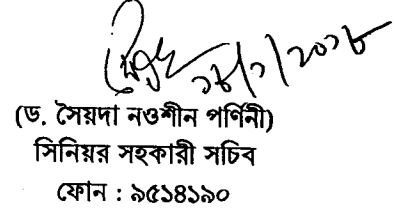 (ড. সৈয়দা নওশীন পর্ণিনী)
সিনিয়র সহকারী সচিব
ফোন : ৯৫১৪১৯০